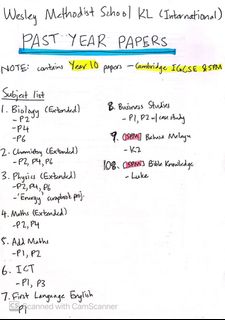 Wesley Methodist School KL (International)
PAST YEAR PAPERS
NOTE: contains Year 10 papers - Cambridge IGCSE & SPM
Subject list
1. Biology (Extended)
- P2
- P4
- P6
2. Chemistry (Extended)
- P2, P4, P6
3. Physics (Extended)
- P2, P4, P6
- 'Energy' scrapbook proj.
4. Maths (Extended)
- P2, P4
5. Add Maths
- P1, P2
6. ICT
- P1, P3
7. First Language English
- P1
8. Business Studies
- P1, P2 - case study
9. (SPM) Bahasa Melayu
- K2
10. (SPM) Bible Knowledge
- Luke
CS Scanned with CamScanner